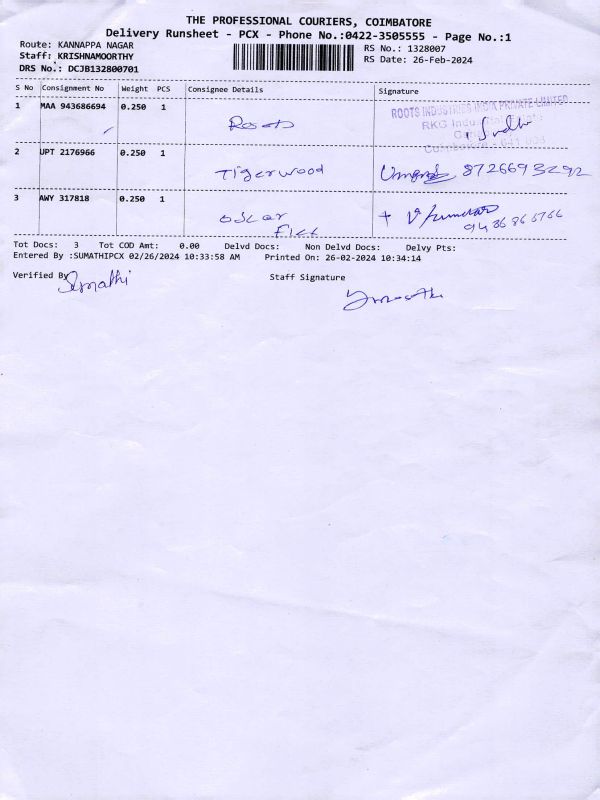 THE PROFESSIONAL COURIERS, COIMBATORE
Delivery Runsheet - PCX - Phone No.:0422-3505555 - Page No.:1
Route: KANNAPPA NAGAR
Staff: KRISHNAMOORTHY
DRS No.: DCJB132800701
RS No.: 1328007
RS Date: 26-Feb-2024
S No Consignment No Weight PCS Consignee Details Signature
1 MAA 943686694 0.250 1 Roots
ROOTS INDUSTRIES INDIA PRIVATE LIMITED
RKG Industrial Estate
2 JPT 2176966 0.250 1 Tigerwood 8726693292
3 AWY 317818 0.250 1 oscar
Tot Docs: 3 Tot COD Amt: 0.00 Delvd Docs: Non Delvd Docs: Delvy Pts:
Entered By :SUMATHIPCX 02/26/2024 10:33:58 AM Printed On: 26-02-2024 10:34:14
Verified By Sumathi
Staff Signature